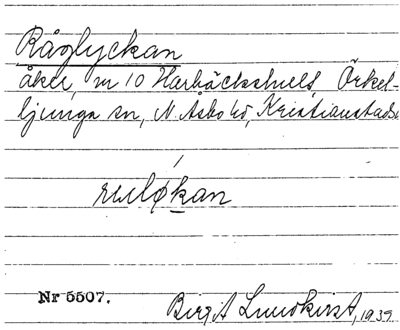 Råglyckan
åker, nr 10 Harbäckshult, Örkel-
ljunga sn, N. Åsbo hd, Kristianstads
ruløkan
Nr 5507.
Birgit Lundkvist, 1939